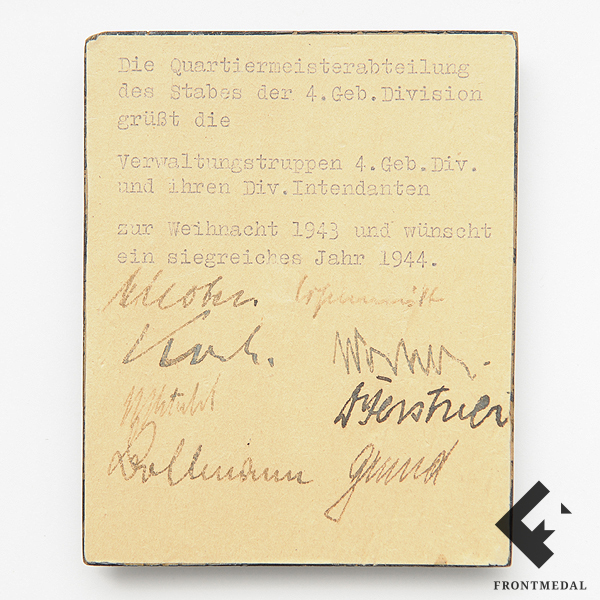 Die Quartiermeisterabteilung
des Stabes der 4.Geb.Division
grüßt die
Verwaltungstruppen 4.Geb.Div.
und ihren Div.Intendanten
zur Weihnacht 1943 und wünscht
ein siegreiches Jahr 1944.
Koch.
Dollmann Grund
FRONTMEDAL